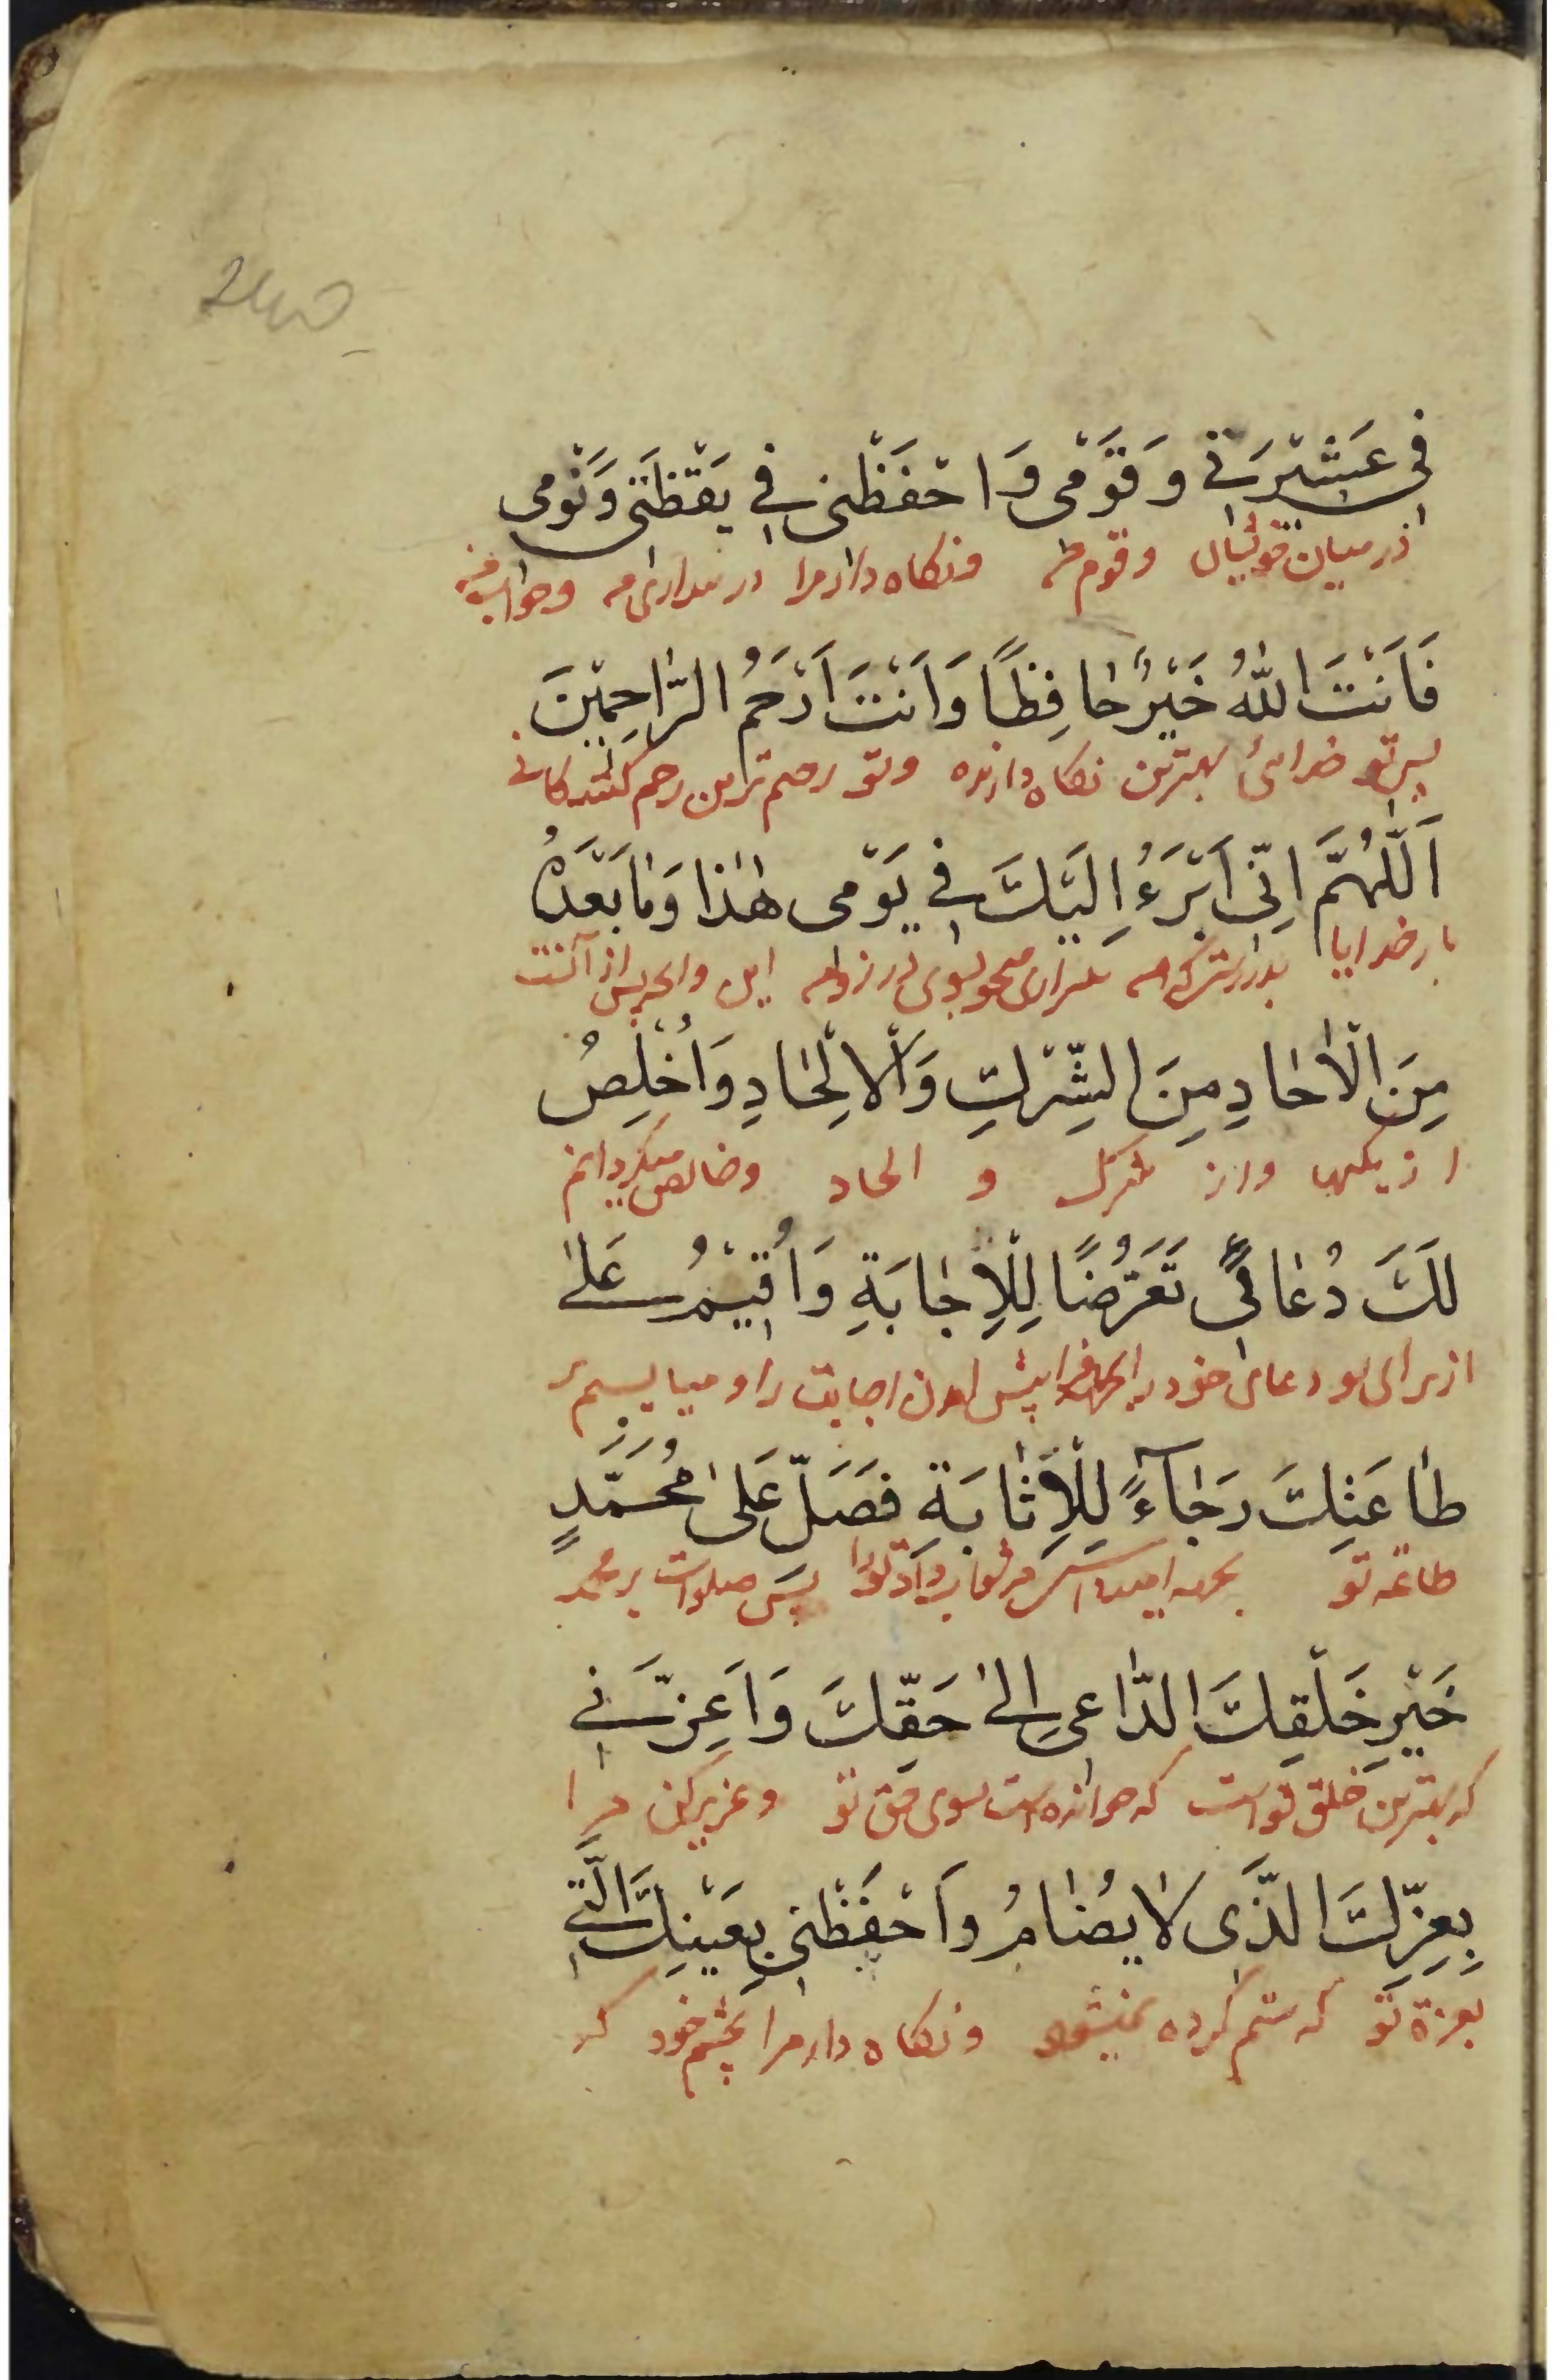 في عَشيْرَتي وَقَوْمى وَاحْفَظْنى في يَقْظَتى وَنَوْمى
از ميان خويشان وقوم من ونكاه دار مرا در بيدارى من وخواب من
فَاَنْتَ اللّٰهُ خَيْرٌ حٰافِظًا وَاَنْتَ اَرْحَمُ الرّٰاحِميْنَ
پس تو خدائى بهترين نكاه دارنده وتو رحيم ترين رحم كنندكانى
اَللّٰهُمَّ اِنّى اَبْرَءُ اِلَيْكَ في يَوْمى هٰذٰا وَمٰا بَعْدَهُ
بار خدايا بدرستيكه من بيزارى ميجويم بسوى تو در روز من اين وانچه پس از آنست
مِنَ الْاٰحٰادِ مِنَ الشِّرْكِ وَالْاِلْحٰادِ وَاُخْلِصُ
از يكيها واز شرك و الحاد وخالص ميكردانم
لَكَ دُعٰائى تَعَرُّضًا لِلْاِجٰابَةِ وَاُقيْمُ عَلىٰ
از براى تو دعاى خود پيش اجابت را و مى ايستم بر
طٰاعَتِكَ رَجٰآءً لِلْاِثٰابَةِ فَصَلِّ عَلىٰ مُحَمَّدٍ
طاعة تو بجهة اميد پس صلوات بر محمد
خَيْرِ خَلْقِكَ الدّٰاعى اِلىٰ حَقِّكَ وَاَعِزَّنى
كه بهترين خلق تو است كه خواننده است بسوى حق تو وعزيز كن مرا
بِعِزِّكَ الَّذى لٰا يُضٰامُ وَاحْفَظْنى بِعَيْنِكَ الَّتى
بعزة تو كه ستم كرده نميشود ونكاه دار مرا بچشم خود كه